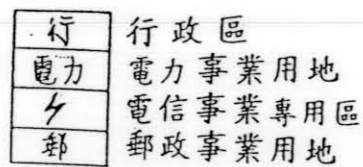 行 行政區
電力 電力事業用地
電信事業專用區
郵 郵政事業用地